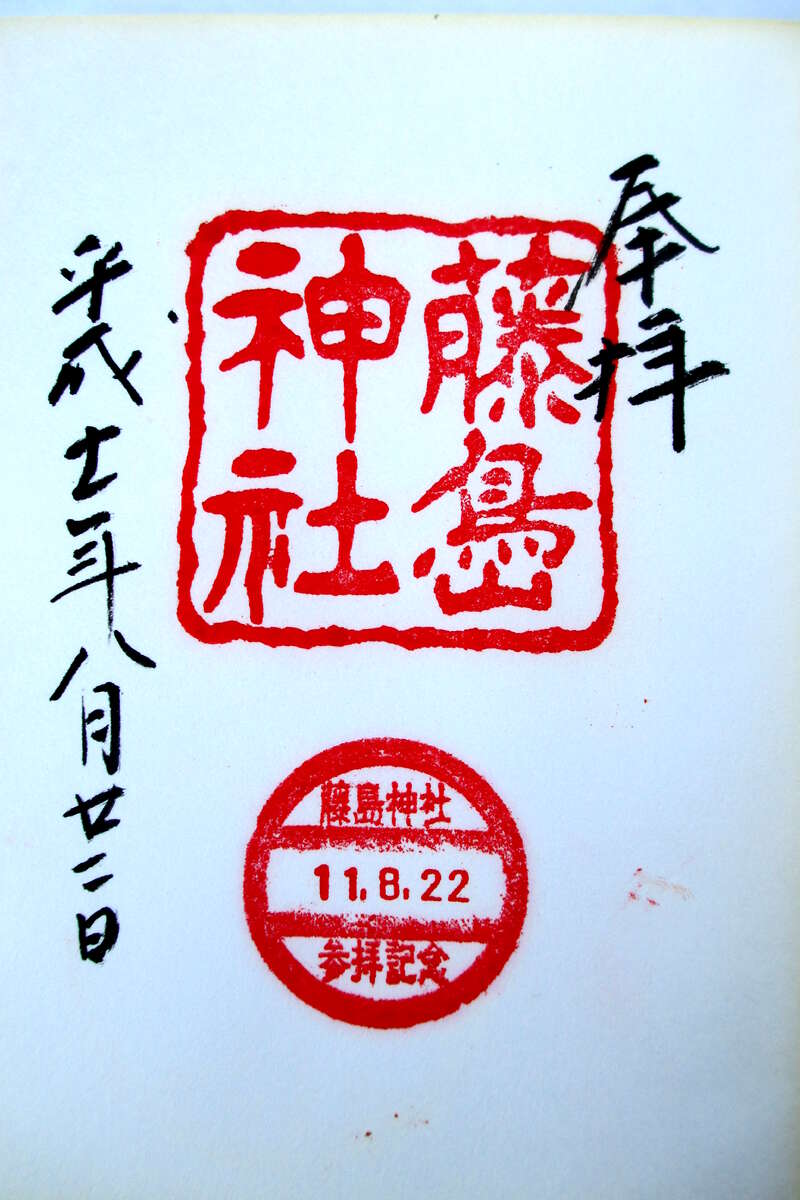 奉拝
藤島
神社
平成十一年八月廿二日
藤島神社
11.8.22
参拝記念